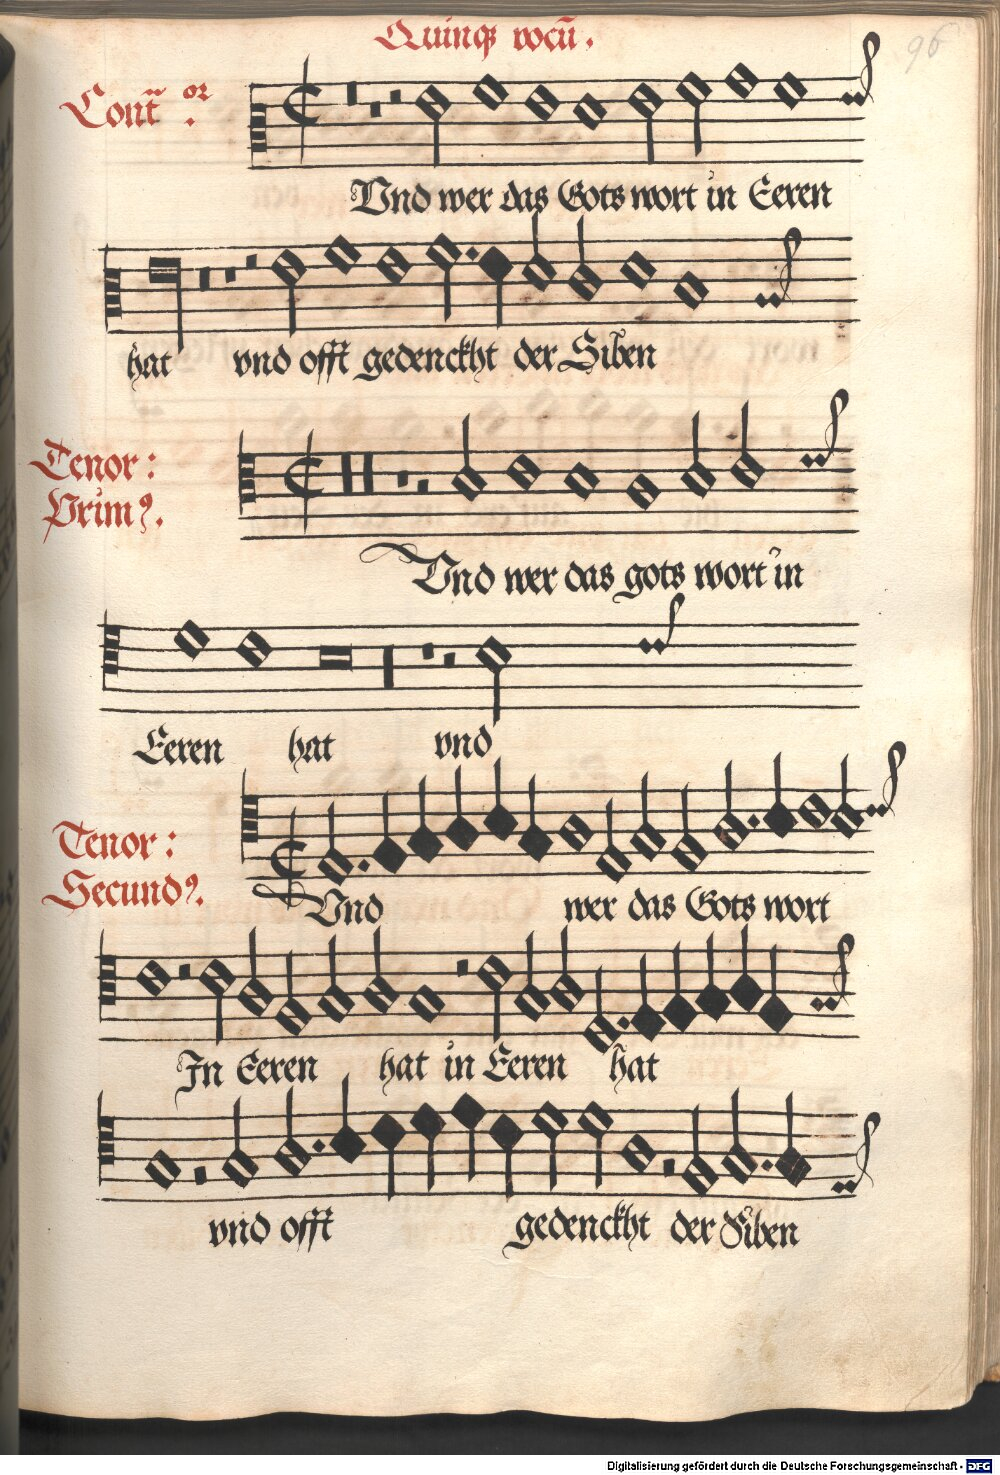 Quinqȝ vocū.
96
Conꝉ̄ or.
Vnd wer das Gots wort in Eeren
hat vnd offt gedenckht der Siben
Tenor:
Primꝰ.
Vnd wer das gots wort in
Eeren hat vnd
Tenor:
Secundꝰ.
Vnd wer das Gots wort
In Eeren hat in Eeren hat
vnd offt gedenckht der Siben
Digitalisierung gefördert durch die Deutsche Forschungsgemeinschaft - DFG